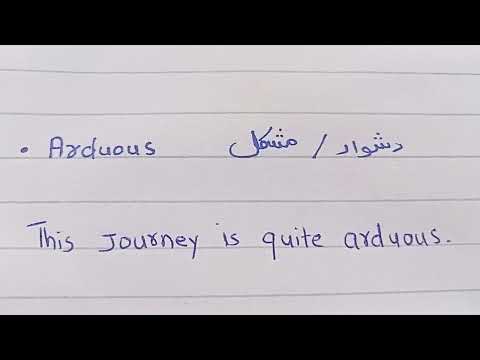 • Arduous دشوار / مشکل
This Journey is quite arduous.